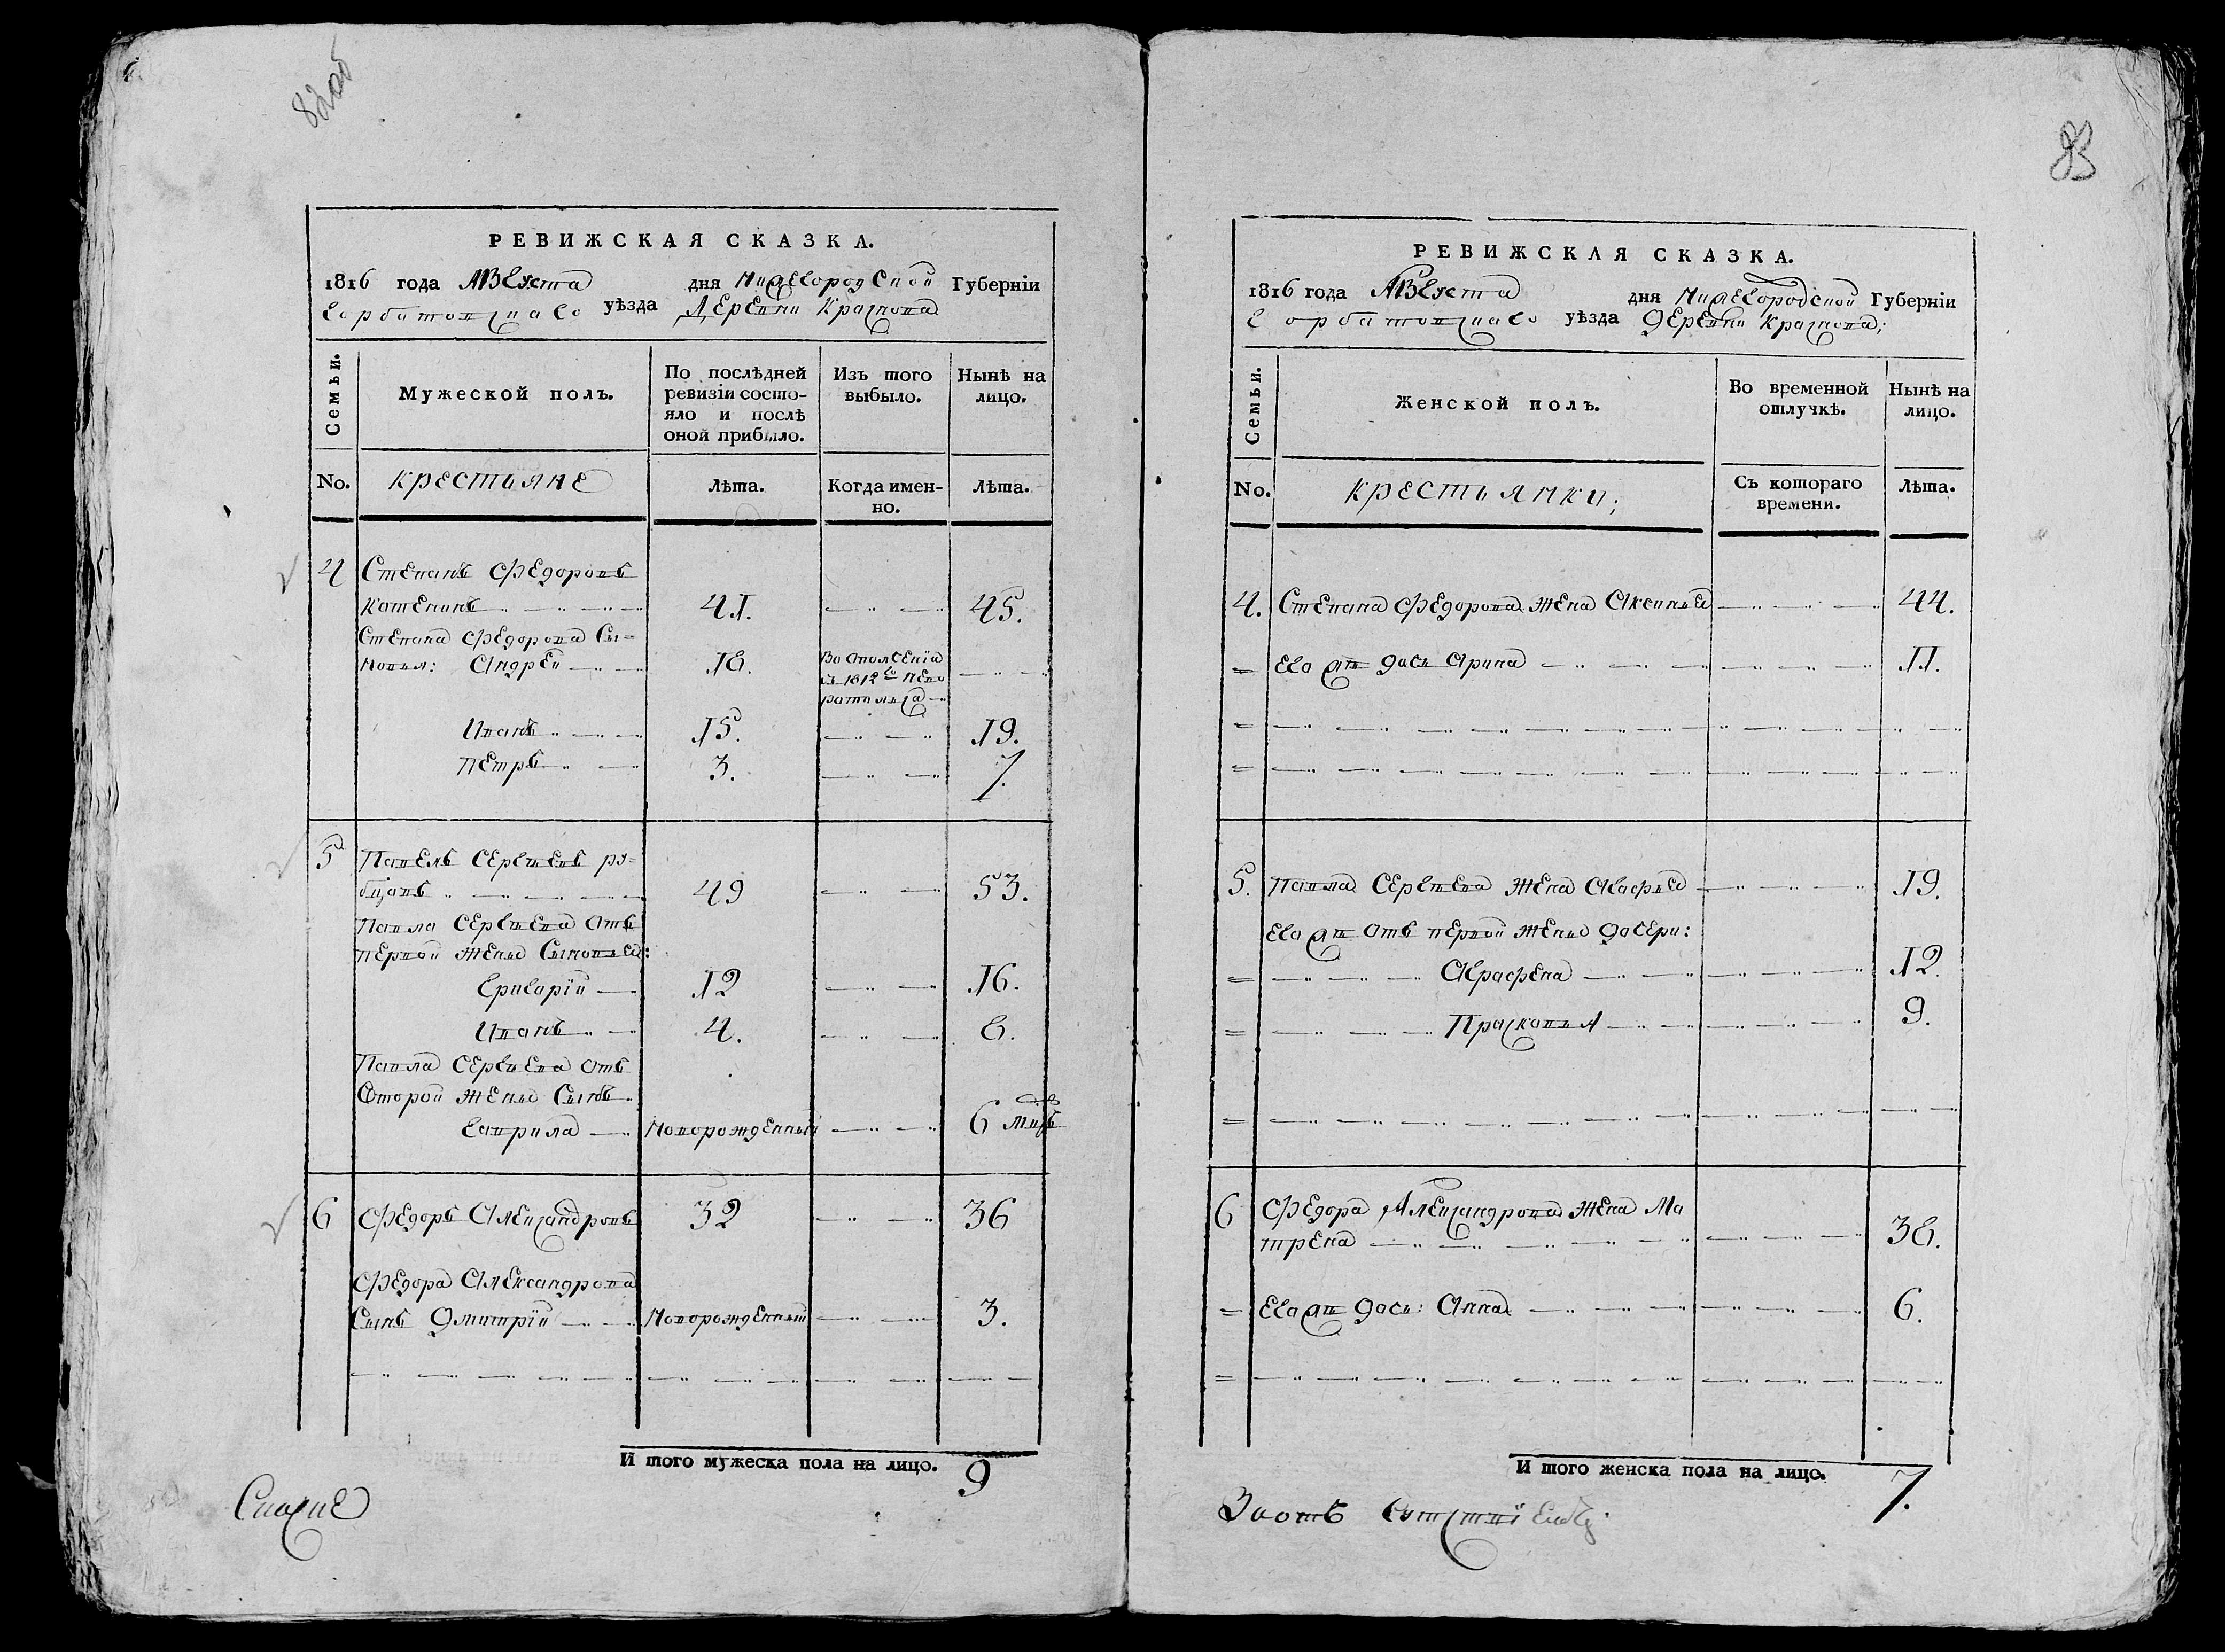 82об
83
РЕВИЖСКАЯ СКАЗКА.
1816 года Августа дня Нижегородской Губерніи
Горбатовскаго уѣзда Деревни Краснова
Семьи.
Мужеской полъ.
По послѣдней ревизіи состо-
яло и послѣ
оной прибыло.
Изъ того
выбыло.
Нынѣ на
лицо.
No. Крестьяне лѣта. Когда имен-
но. лѣта.
4 Степанъ Федоровъ
Котенинъ 41. 45.
Степана Федорова Сы=
новья: Андрей 18. Во ополчениі
въ 1812го нево
ратился
Иванъ 15. 19.
Петръ 3. 7.
5 Павелъ Сергѣевъ ру=
бцовъ 49 53.
Павла Сергѣева отъ
первой жены Сыновья:
Григорій 12 16.
Иванъ 4. 8.
Павла Сергѣева отъ
Второй жены Сынъ
Гаврила Новорожденный 6 мцовъ
6 Федоръ Александровъ 32 36
Федора Александрова
Сынъ Дмитрій Новорожденный 3.
И того мужеска пола на лицо. 9
РЕВИЖСКАЯ СКАЗКА.
1816 года Августа дня Нижегородской Губерніи
Горбатовскаго уѣзда Деревни Краснова;
Семьи.
Женской полъ.
Во временной
отлучкѣ.
Нынѣ на
лицо.
No. Крестьянки; Съ котораго
времени. лѣта.
4. Степана Федорова жена Аксинья 44.
Его жъ дочь Арина 11.
5. Павла Сергѣева жена Агафья 19.
Его жъ отъ первой жены дочери:
Аграфена 12.
Прасковья 9.
6 Федора Александрова жена Ма
трена 38.
Его жъ дочь: Анна 6.
И того женска пола на лицо. 7.